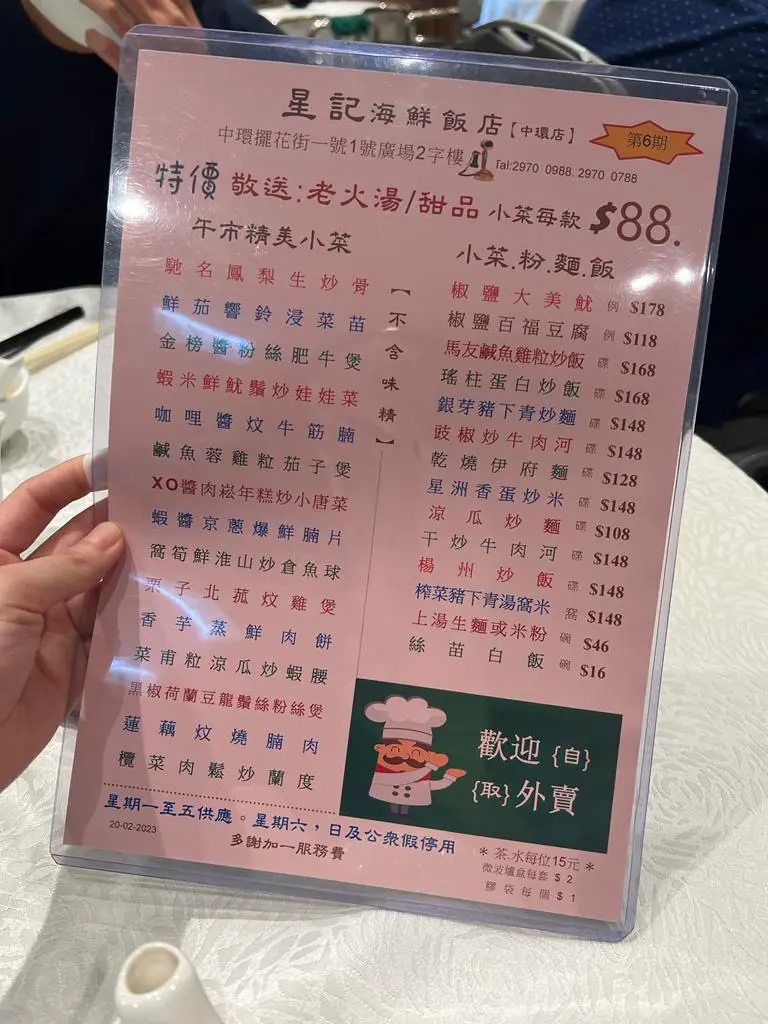 星記海鮮飯店【中環店】
第6期
中環擺花街一號1號廣場2字樓
Tal:2970 0988. 2970 0788
特價 敬送:老火湯/甜品 小菜每款 $88.
午市精美小菜
馳名鳳梨生炒骨
鮮茄響鈴浸菜苗
金榜醬粉絲肥牛煲
蝦米鮮魷鬚炒娃娃菜
咖哩醬炆牛筋腩
鹹魚蓉雞粒茄子煲
XO醬肉崧年糕炒小唐菜
蝦醬京蔥爆鮮腩片
窩筍鮮淮山炒倉魚球
栗子北菰炆雞煲
香芋蒸鮮肉餅
菜甫粒涼瓜炒蝦腰
黑椒荷蘭豆龍鬚絲粉絲煲
蓮藕炆燒腩肉
欖菜肉鬆炒蘭度
【不含味精】
小菜.粉.麵.飯
椒鹽大美魷 例 $178
椒鹽百福豆腐 例 $118
馬友鹹魚雞粒炒飯 碟 $168
瑤柱蛋白炒飯 碟 $168
銀芽豬下青炒麵 碟 $148
豉椒炒牛肉河 碟 $148
乾燒伊府麵 碟 $128
星洲香蛋炒米 碟 $148
涼瓜炒麵 碟 $108
干炒牛肉河 碟 $148
楊州炒飯 碟 $148
榨菜豬下青湯窩米 窩 $148
上湯生麵或米粉 碗 $46
絲苗白飯 碗 $16
歡迎{自}
{取}外賣
星期一至五供應。星期六，日及公衆假停用
20-02-2023
多謝加一服務費
* 茶.水每位15元 *
微波爐盒每套 $ 2
膠袋每個 $ 1